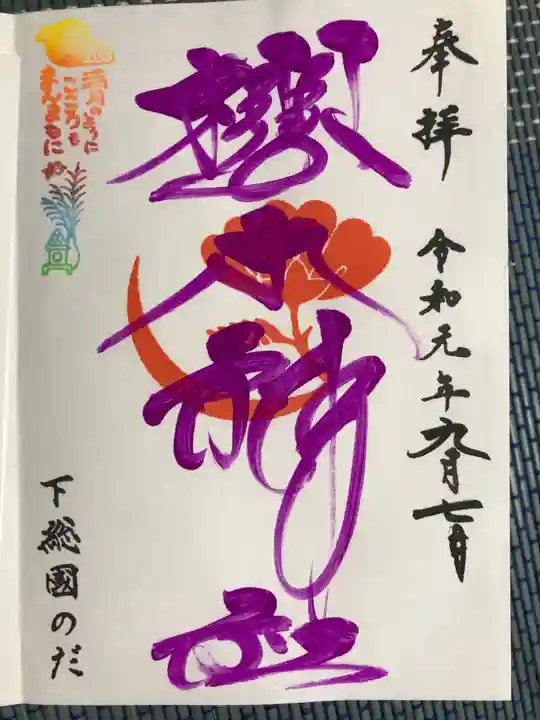 奉拝　令和元年九月七日
櫻木神社
満月のように
こころも
まんまるに
下総國のだ